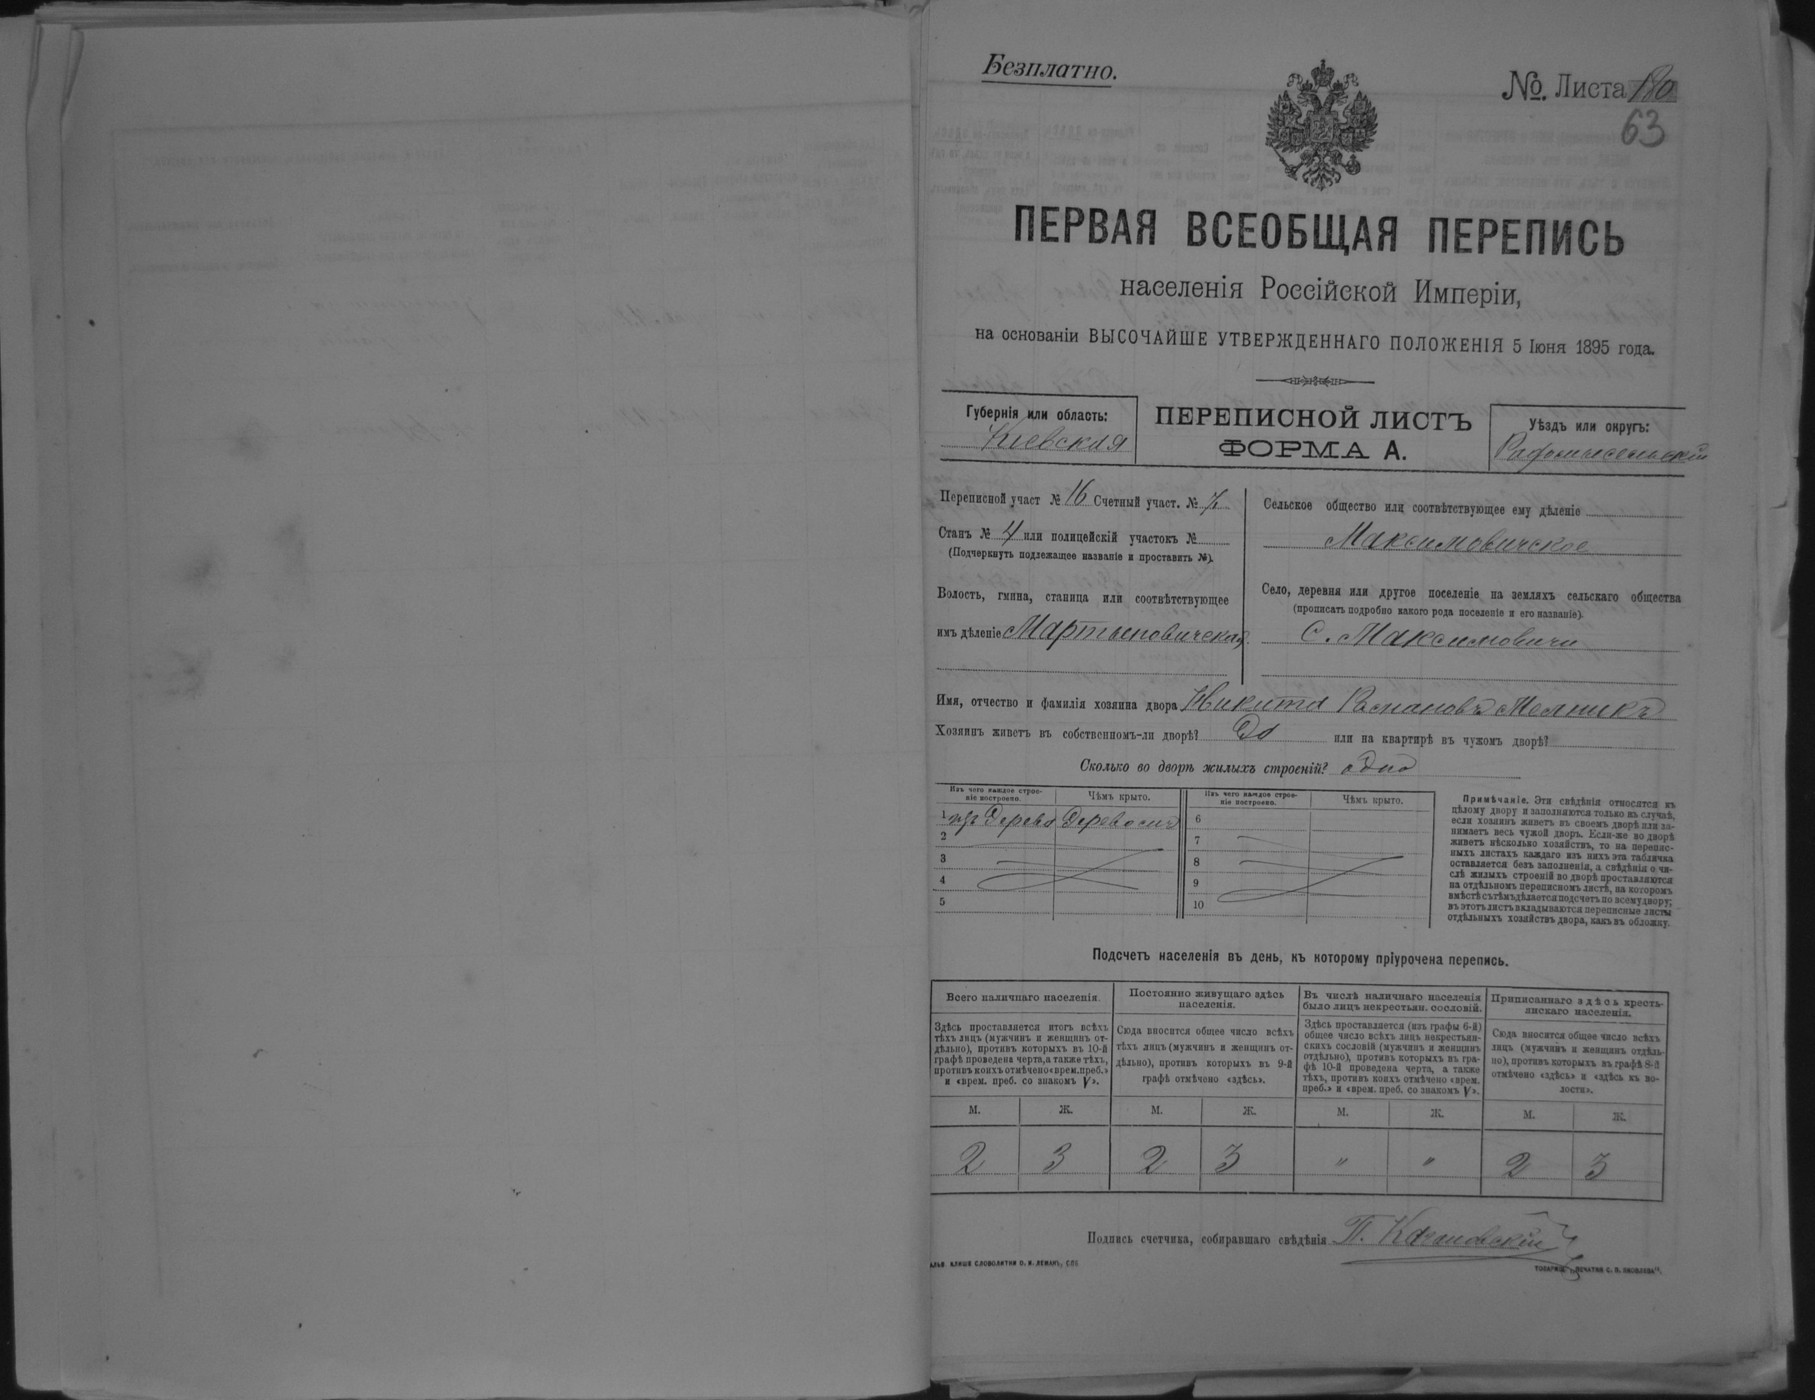 Безплатно.
№. Листа 180
63
ПЕРВАЯ ВСЕОБЩАЯ ПЕРЕПИСЬ
населенія Россійской Имперіи,
на основаніи ВЫСОЧАЙШЕ УТВЕРЖДЕННАГО ПОЛОЖЕНІЯ 5 Іюня 1895 года.
Губернія или область:
Кіевская
ПЕРЕПИСНОЙ ЛИСТЪ
ФОРМА А.
Уѣздъ или округъ:
Переписной участ № 16 Счетный участ. № 7
Станъ № 4 или полицейскій участокъ №
(Подчеркнуть подлежащее названіе и проставить №).
Волость, гмина, станица или соотвѣтствующее
имъ дѣленіе Мартыновичская
Сельское общество или соотвѣтствующее ему дѣленіе
Максимовичское
Село, деревня или другое поселеніе на земляхъ сельскаго общества
(прописать подробно какого рода поселеніе и его названіе).
С. Максимовичи
Имя, отчество и фамилія хозяина двора Никита Романовъ Мелникъ
Хозяинъ живетъ въ собственномъ-ли дворѣ? Да или на квартирѣ въ чужомъ дворѣ?
Сколько во дворѣ жилыхъ строеній? одно
Изъ чего каждое строе-
ніе построено.
Чѣмъ крыто.
1 изъ Дерева Деревомъ
2
3
4
5
Изъ чего каждое строе-
ніе построено.
Чѣмъ крыто.
6
7
8
9
10
Примѣчаніе. Эти свѣдѣнія относятся къ
цѣлому двору и заполняются только въ случаѣ,
если хозяинъ живетъ въ своемъ дворѣ или за-
нимаетъ весь чужой дворъ. Если-же во дворѣ
живетъ нѣсколько хозяйствъ, то на перепис-
ныхъ листахъ каждаго изъ нихъ эта табличка
оставляется безъ заполненія, а свѣдѣнія о чи-
слѣ жилыхъ строеній во дворѣ проставляются
на отдѣльномъ переписномъ листѣ, на которомъ
вмѣстѣ съ тѣмъ дѣлается подсчетъ по всему двору;
въ этотъ листъ вкладываются переписные листы
отдѣльныхъ хозяйствъ двора, какъ въ обложку.
Подсчетъ населенія въ день, къ которому пріурочена перепись.
Всего наличнаго населенія.
Здѣсь проставляется итогъ всѣхъ
тѣхъ лицъ (мужчинъ и женщинъ от-
дѣльно), противъ которыхъ въ 10-й
графѣ проведена черта, а также тѣхъ,
противъ коихъ отмѣчено «врем. преб.»
и «врем. преб. со знакомъ V».
Постоянно живущаго здѣсь
населенія.
Сюда вносится общее число всѣхъ
тѣхъ лицъ (мужчинъ и женщинъ от-
дѣльно), противъ которыхъ въ 9-й
графѣ отмѣчено «здѣсь».
Въ числѣ наличнаго населенія
было лицъ некрестьян. сословій.
Здѣсь проставляется (изъ графы 6-й)
общее число всѣхъ лицъ некрестьян-
скихъ сословій (мужчинъ и женщинъ
отдѣльно), противъ которыхъ въ гра-
фѣ 10-й проведена черта, а также
тѣхъ, противъ коихъ отмѣчено «врем.
преб.» и «врем. преб. со знакомъ V».
Приписаннаго здѣсь кресть-
янскаго населенія.
Сюда вносится общее число всѣхъ
лицъ (мужчинъ и женщинъ отдѣль-
но), противъ которыхъ въ графѣ 8-й
отмѣчено «здѣсь» и «здѣсь къ во-
лости».
М. Ж. М. Ж. М. Ж. М. Ж.
2 3 2 3 " " 2 3
Подпись счетчика, собиравшаго свѣдѣнія
СЛОВОЛИТНИ О. И. ЛЕМАНЪ, СПБ
ПЕЧАТНЯ С. П. ЯКОВЛЕВА".